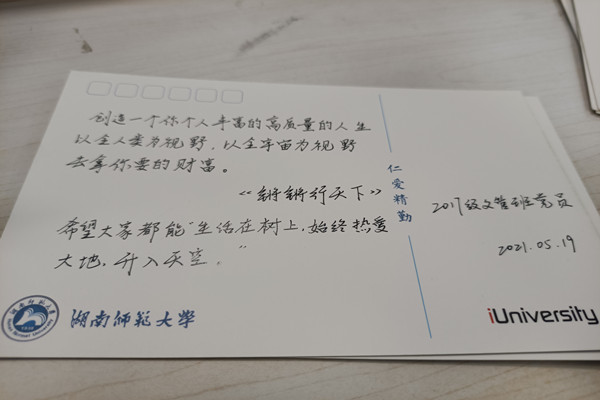 创造一个你个人丰富的高质量的人生
以全人类为视野，以全宇宙为视野
去拿你要的财富。
《锵锵行天下》
希望大家都能“生活在树上，始终热爱
大地，升入天空。”
仁爱精勤
2017级文管班党员
2021.05.19
湖南师范大学
iUniversity